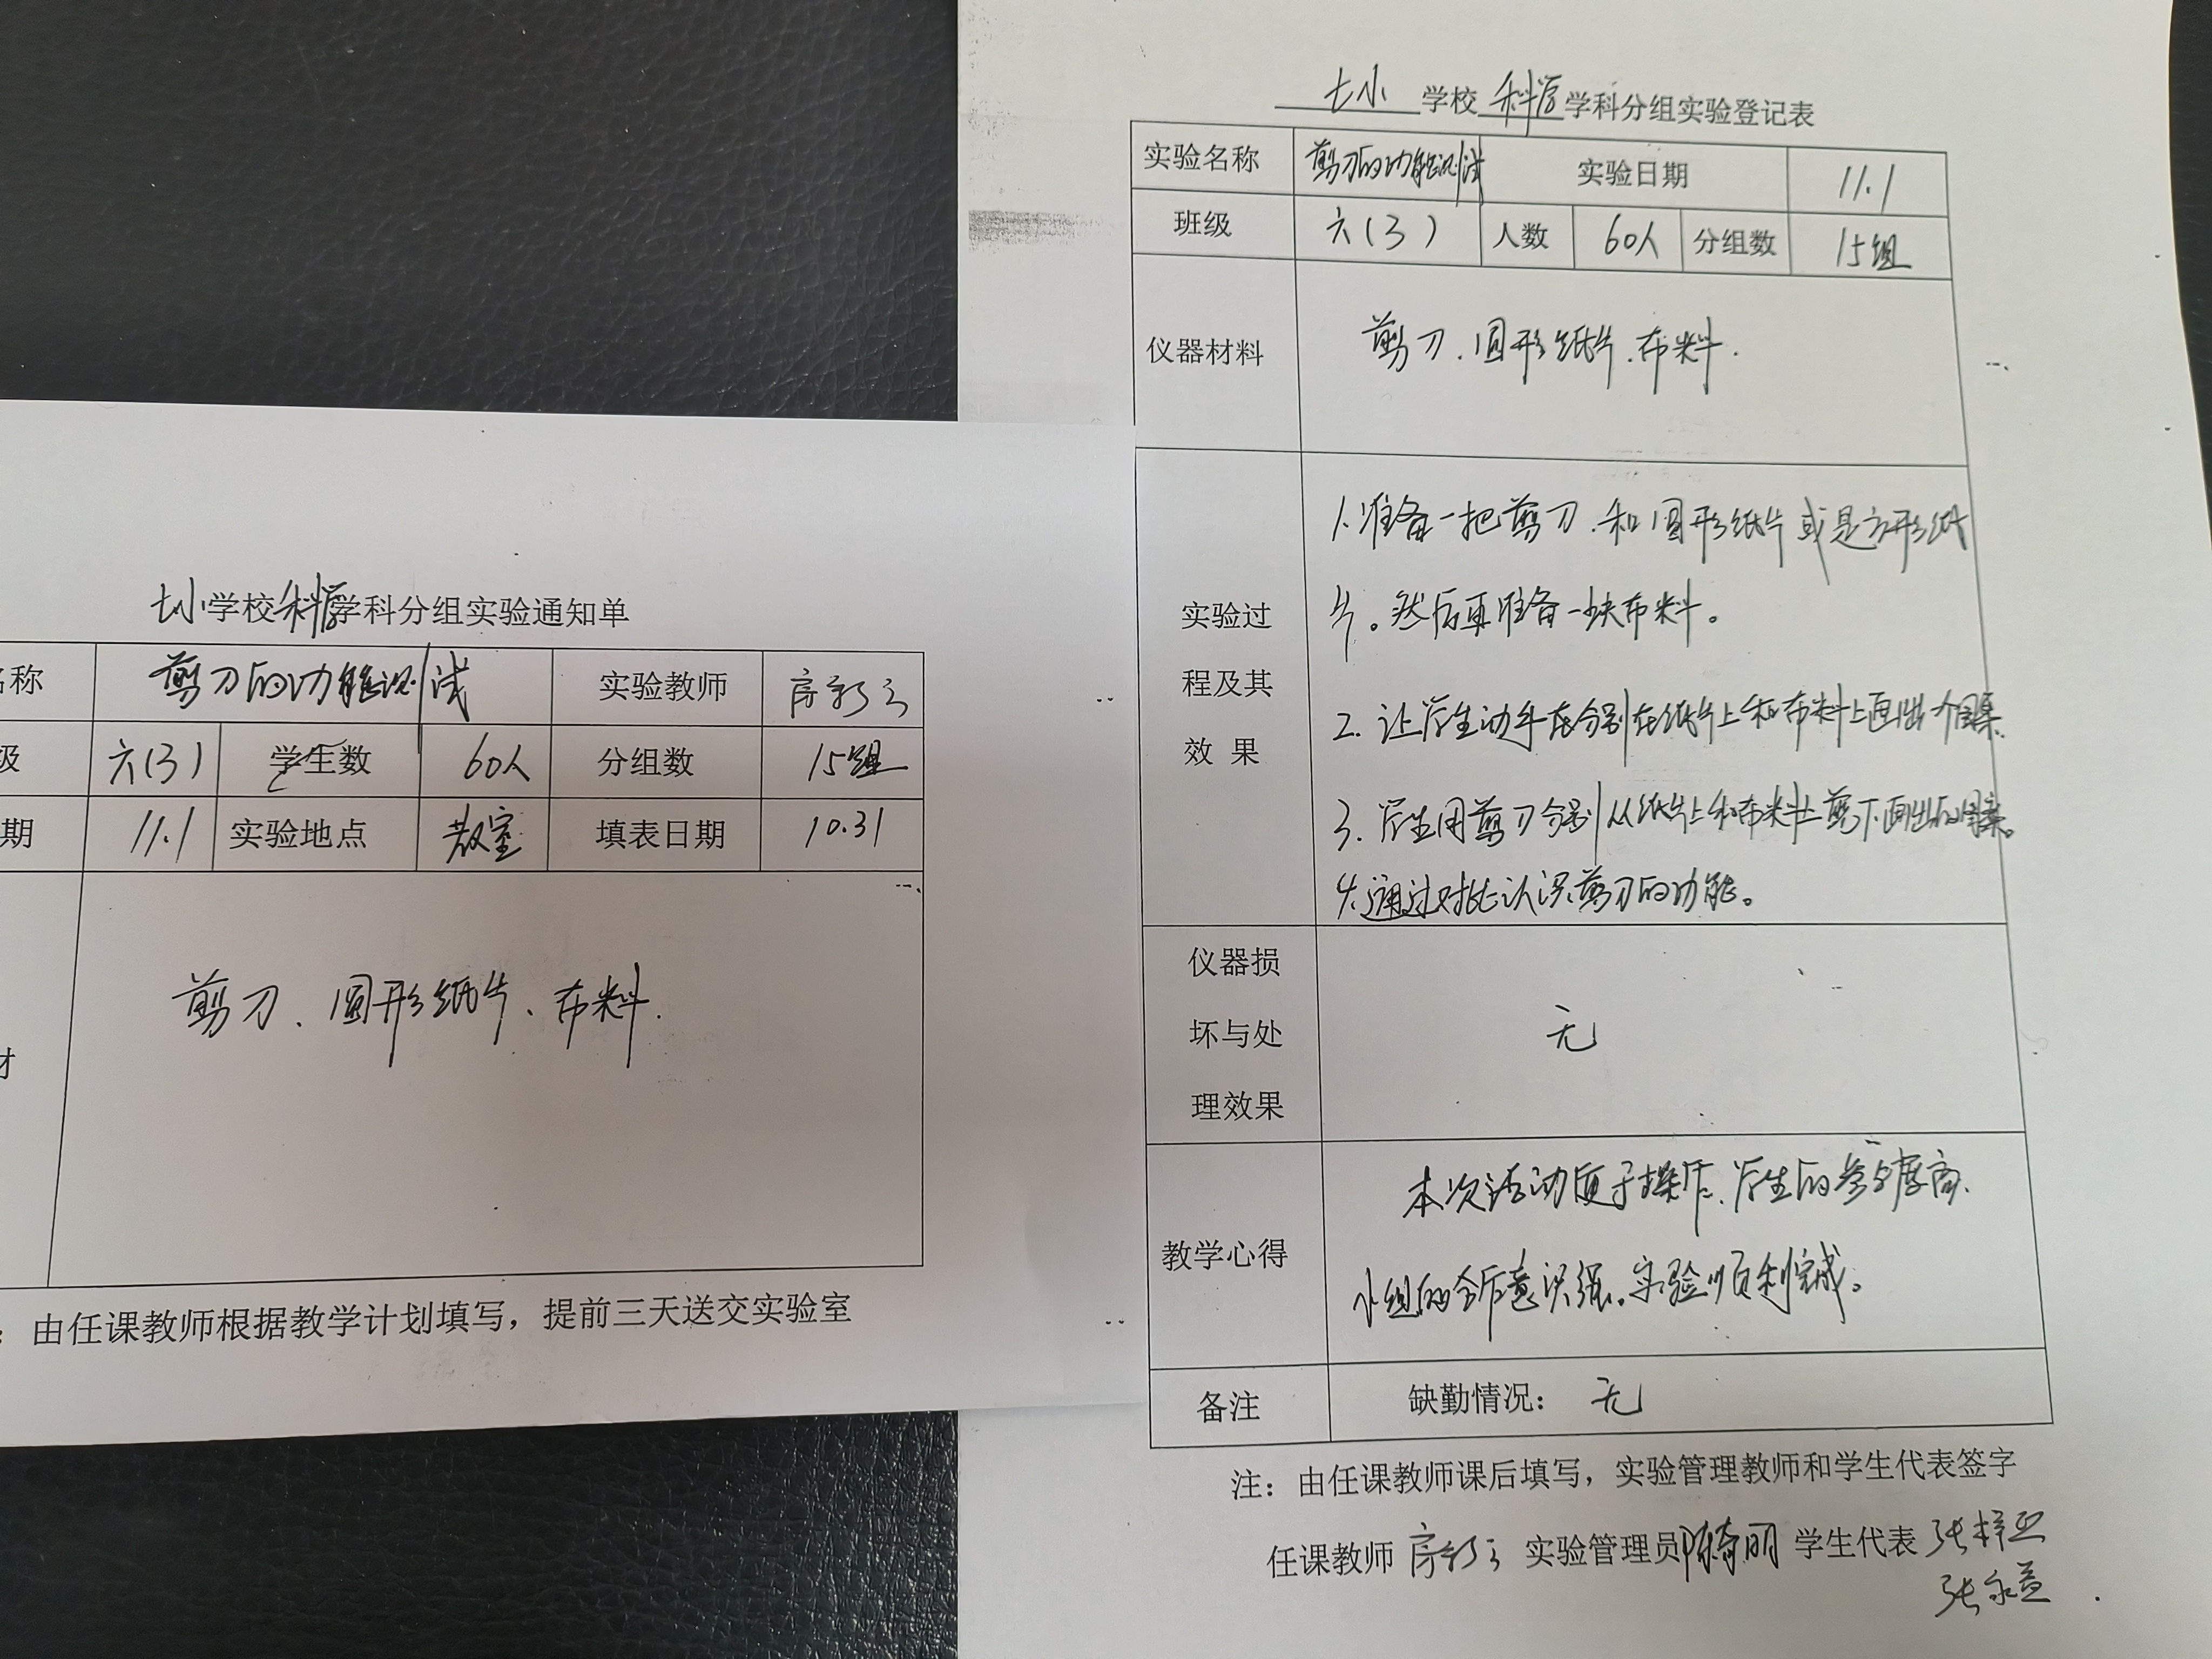 七小学校科学学科分组实验通知单
名称 剪刀的功能测试 实验教师
级 六(3) 学生数 60人 分组数 15组
期 11.1 实验地点 教室 填表日期 10.31
材 剪刀、圆形纸片、布料.
：由任课教师根据教学计划填写，提前三天送交实验室
七小 学校 科学 学科分组实验登记表
实验名称 剪刀的功能测试 实验日期 11.1
班级 六(3) 人数 60人 分组数 15组
仪器材料 剪刀、圆形纸片、布料.
实验过
程及其
效 果
1.准备一把剪刀.和圆形纸片或是方形纸
片。然后再准备一块布料。
2.让学生动手在分别在纸片上和布料上画出个图案.
3.学生用剪刀分别从纸片上和布料上剪下画出的图案。
4.通过对比认识剪刀的功能。
仪器损
坏与处
理效果
无
教学心得
本次活动便于操作、学生的参与度高.
小组的合作意识强。实验顺利完成。
备注 缺勤情况： 无
注：由任课教师课后填写，实验管理教师和学生代表签字
任课教师 实验管理员 陈奇丽 学生代表 张梓
张永益